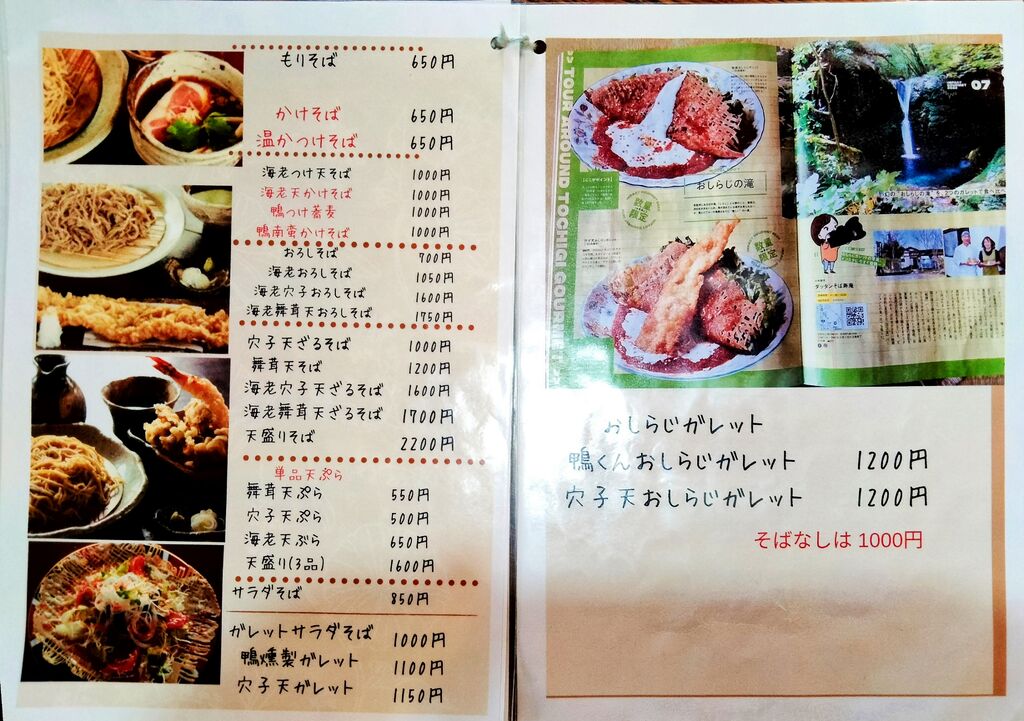 もりそば 650円
かけそば 650円
温かつけそば 650円
海老つけ天そば 1000円
海老天かけそば 1000円
鴨つけ蕎麦 1000円
鴨南蛮かけそば 1000円
おろしそば 700円
海老おろしそば 1050円
海老穴子おろしそば 1600円
海老舞茸天おろしそば 1750円
穴子天ざるそば 1000円
舞茸天そば 1200円
海老穴子天ざるそば 1600円
海老舞茸天ざるそば 1700円
天盛りそば 2200円
単品天ぷら
舞茸天ぷら 550円
穴子天ぷら 500円
海老天ぷら 650円
天盛り(3品) 1600円
サラダそば 850円
ガレットサラダそば 1000円
鴨燻製ガレット 1100円
穴子天ガレット 1150円
>> TOUR AROUND TOCHIGI GOURMET
おしらじの滝
数量限定
数量限定
07
ダッタンそば
おしらじガレット
鴨くんおしらじガレット 1200円
穴子天おしらじガレット 1200円
そばなしは 1000円